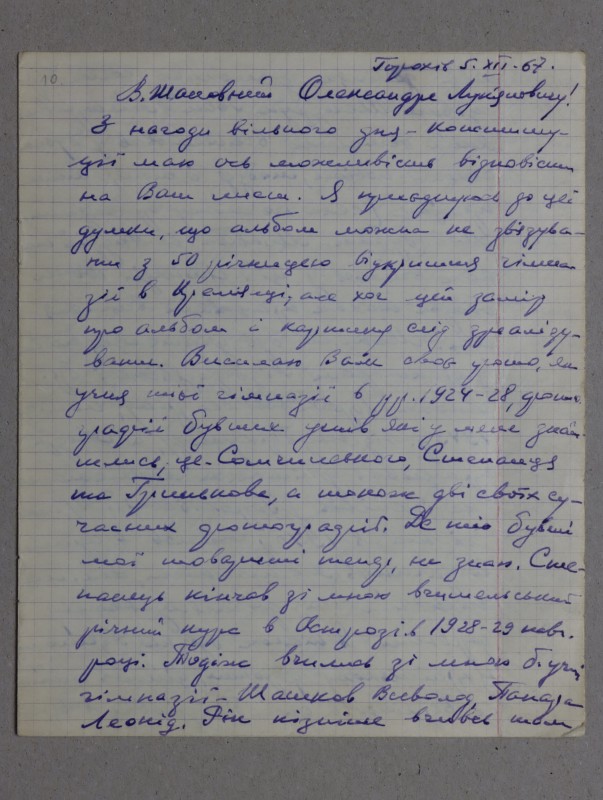 10
Горохів 5. XII-67.
В. Шановний Олександре Лукяновичу!
З нагоди вільного дня - Конститу-
ції маю ось можливість відповісти
на Ваш лист. Я приєднуюсь до цеї
думки, що альбом можна не звязува-
ти з 50 річницею відкриття гімна
зії в Кремянці, але хоч цей замір
про альбом і картини слід зреалізу-
вати. Висилаю Вам своє фото, як
учня тієї гімназії в рр. 1924-28, фото-
графії бувших учнів які у мене знай
шлись, це Сомчинського, Степанця
та Гришькова, а також дві своїх су-
часних фотографії. Де тіо бувші
мої товариші тепер, не знаю. Сте-
панець кінчав зі мною вчительський
річний курс в Острозі в 1928-29 навч.
році. Тодіж вчились зі мною б. учні
гімназії - Шашков Всеволод,
Леонід. Рік пізніше вчивсь там